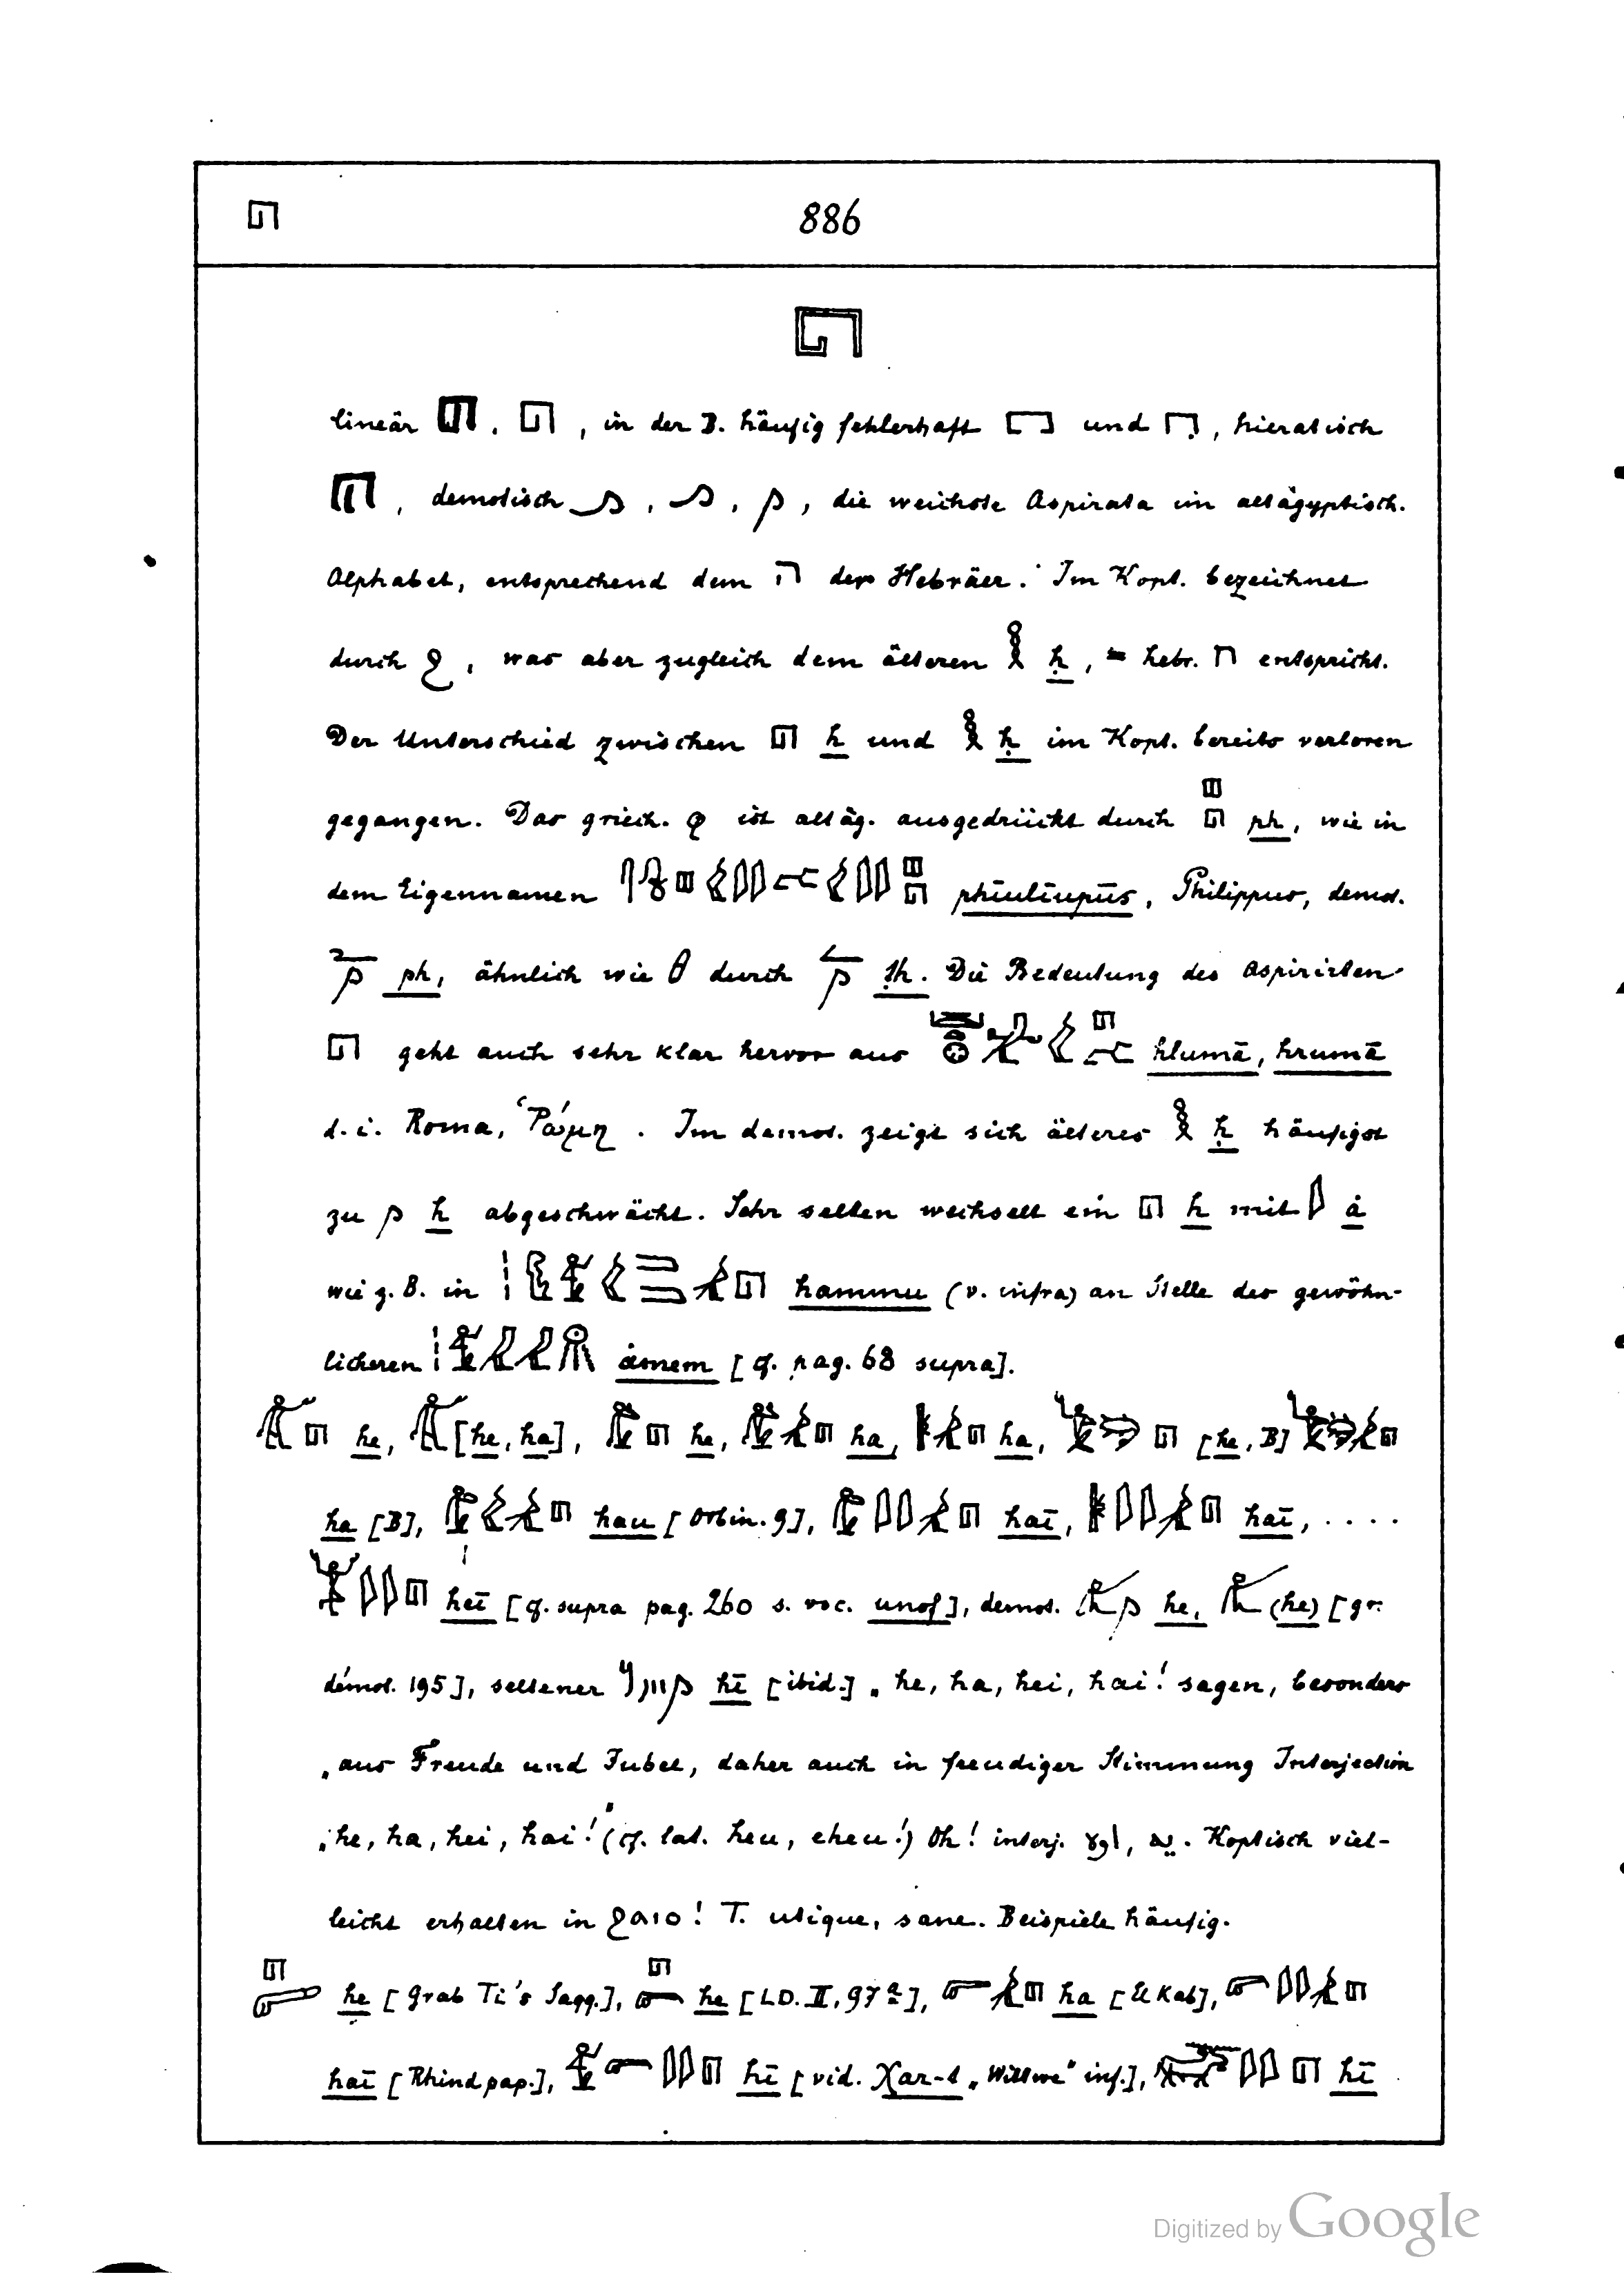 𓉔 886
𓉔
linear 𓉔, 𓉔, in der B. häufig fehlerhaft und, hieratisch
, demotisch , , , die weichste Aspirata im altägyptisch.
Alphabet, entsprechend dem ה der Hebräer. Im Kopt. bezeichnet
durch ϩ, was aber zugleich dem älteren 𓎛 ḥ, = hebr. ח entspricht.
Der Unterschied zwischen 𓉔 h und 𓎛 ḥ im Kopt. bereits verloren
gegangen. Das griech. φ ist altäg. ausgedrückt durch 𓊪𓉔 ph, wie in
dem Eigennamen phīulīupūs, Philippus, demot.
ph, ähnlich wie θ durch th. Die Bedeutung des aspirirten
𓉔 geht auch sehr klar hervor aus hlumā, hrumā
d. i. Roma, Ῥώμη. Im demot. zeigt sich älteres 𓎛 ḥ häufigst
zu h abgeschwächt. Sehr selten wechselt ein 𓉔 h mit 𓇋 ȧ
wie z. B. in hammu (v. infra) an Stelle des gewöhn-
licheren ȧmem [cf. pag. 68 supra].
he, [he, ha], he, ha, ha, [he, B]
ha [B], hau [Orbin. 9], haī, haī, ....
heī [cf. supra pag. 260 s. voc. unof], demot. he, (he) [gr.
démot. 195], seltener hī [ibid.] „he, ha, hei, hai! sagen, besonders
„aus Freude und Jubel, daher auch in freudiger Stimmung Interjection
„he, ha, hei, hai!" (cf. lat. heu, eheu!) Oh! interj. Koptisch viel-
leicht erhalten in ϩⲁⲓⲟ! T. utique, sane. Beispiele häufig.
he [Grab Ti's Saqq.], he [LD. II, 97 a], ha [El Kab],
haī [Rhind pap.], hī [vid. χar-t „Wittwe" inf.], hī
Digitized by Google